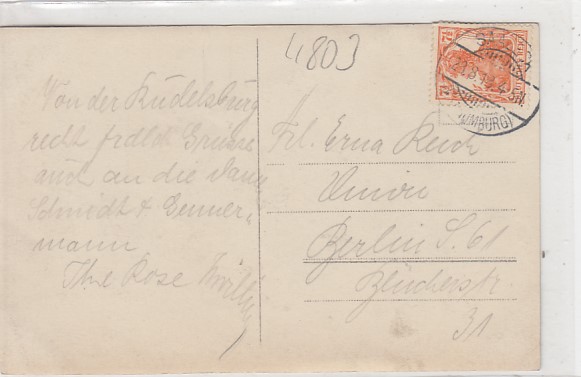 4803
Von der Rudelsburg
recht frdlch Grüsse
auch an die Damen
Schmidt & Genner=
mann
Ihre Rose
Frl. Erna Reich
Union
Berlin S. 61
Blücherstr.
31
7½
7½
(NAUMBURG)